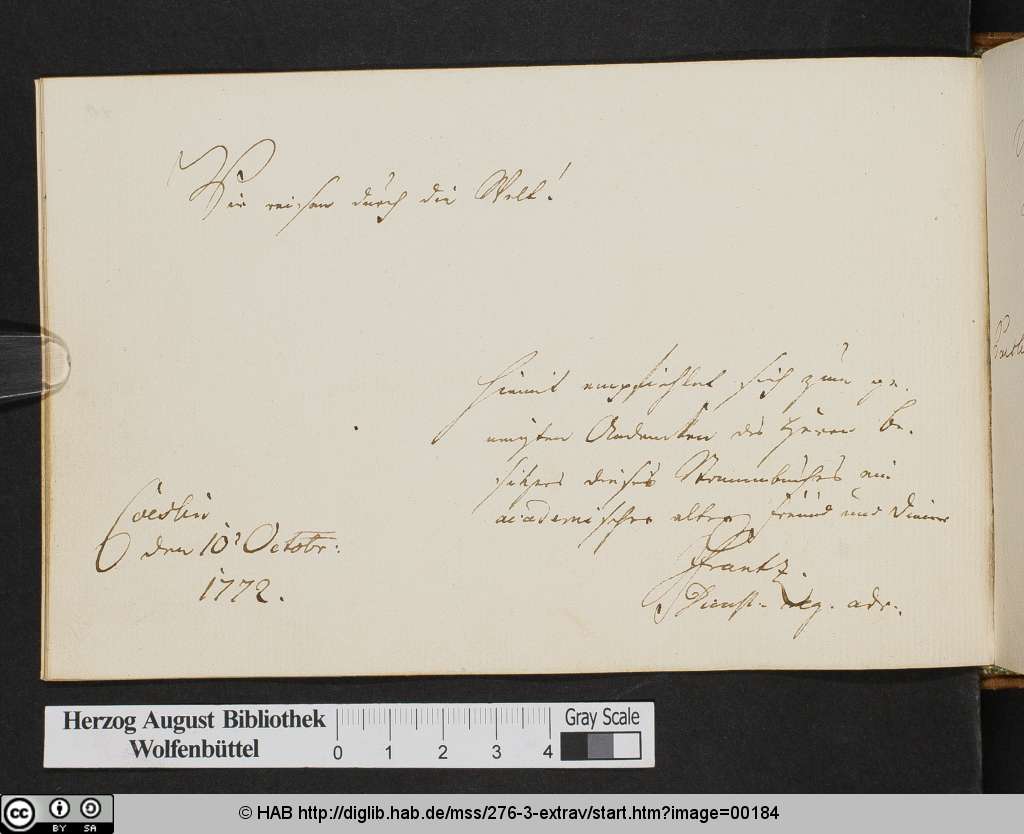 Wir reisen durch die Welt!
Hiemit empfiehlet sich zum ge-
neigten Andencken des Herrn Be-
sitzers dieses Stammbuches ein
academischer alter Freund und Diener
Frantz.
adv:
Coeslin
den 10t Octobr:
1772.
Herzog August Bibliothek
Wolfenbüttel
0 1 2 3 4
Gray Scale
cc BY SA
© HAB http://diglib.hab.de/mss/276-3-extrav/start.htm?image=00184